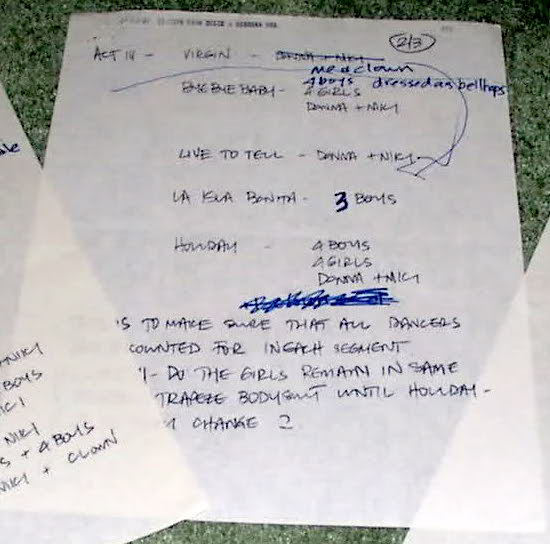 2/3
ACT IV - VIRGIN - DONNA + NIKI
me a clown
BYE BYE BABY - 4 boys dressed as bellhops
4 GIRLS
DONNA + NIKI
LIVE TO TELL - DONNA + NIKI
LA ISLA BONITA - 3 BOYS
HOLIDAY - 4 BOYS
4 GIRLS
DONNA + NIKI
'S TO MAKE SURE THAT ALL DANCERS
COUNTED FOR IN EACH SEGMENT
- DO THE GIRLS REMAIN IN SAME
TRAPEZE BODYSUIT UNTIL HOLIDAY -
CHANGE ?
NIKI
BOYS
NIKI
S + 4 BOYS
NIKI + CLOWN